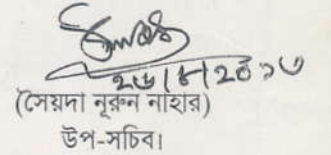 ২৬|৮|২০১৩
(সৈয়দা নূরুন নাহার)
উপ-সচিব।